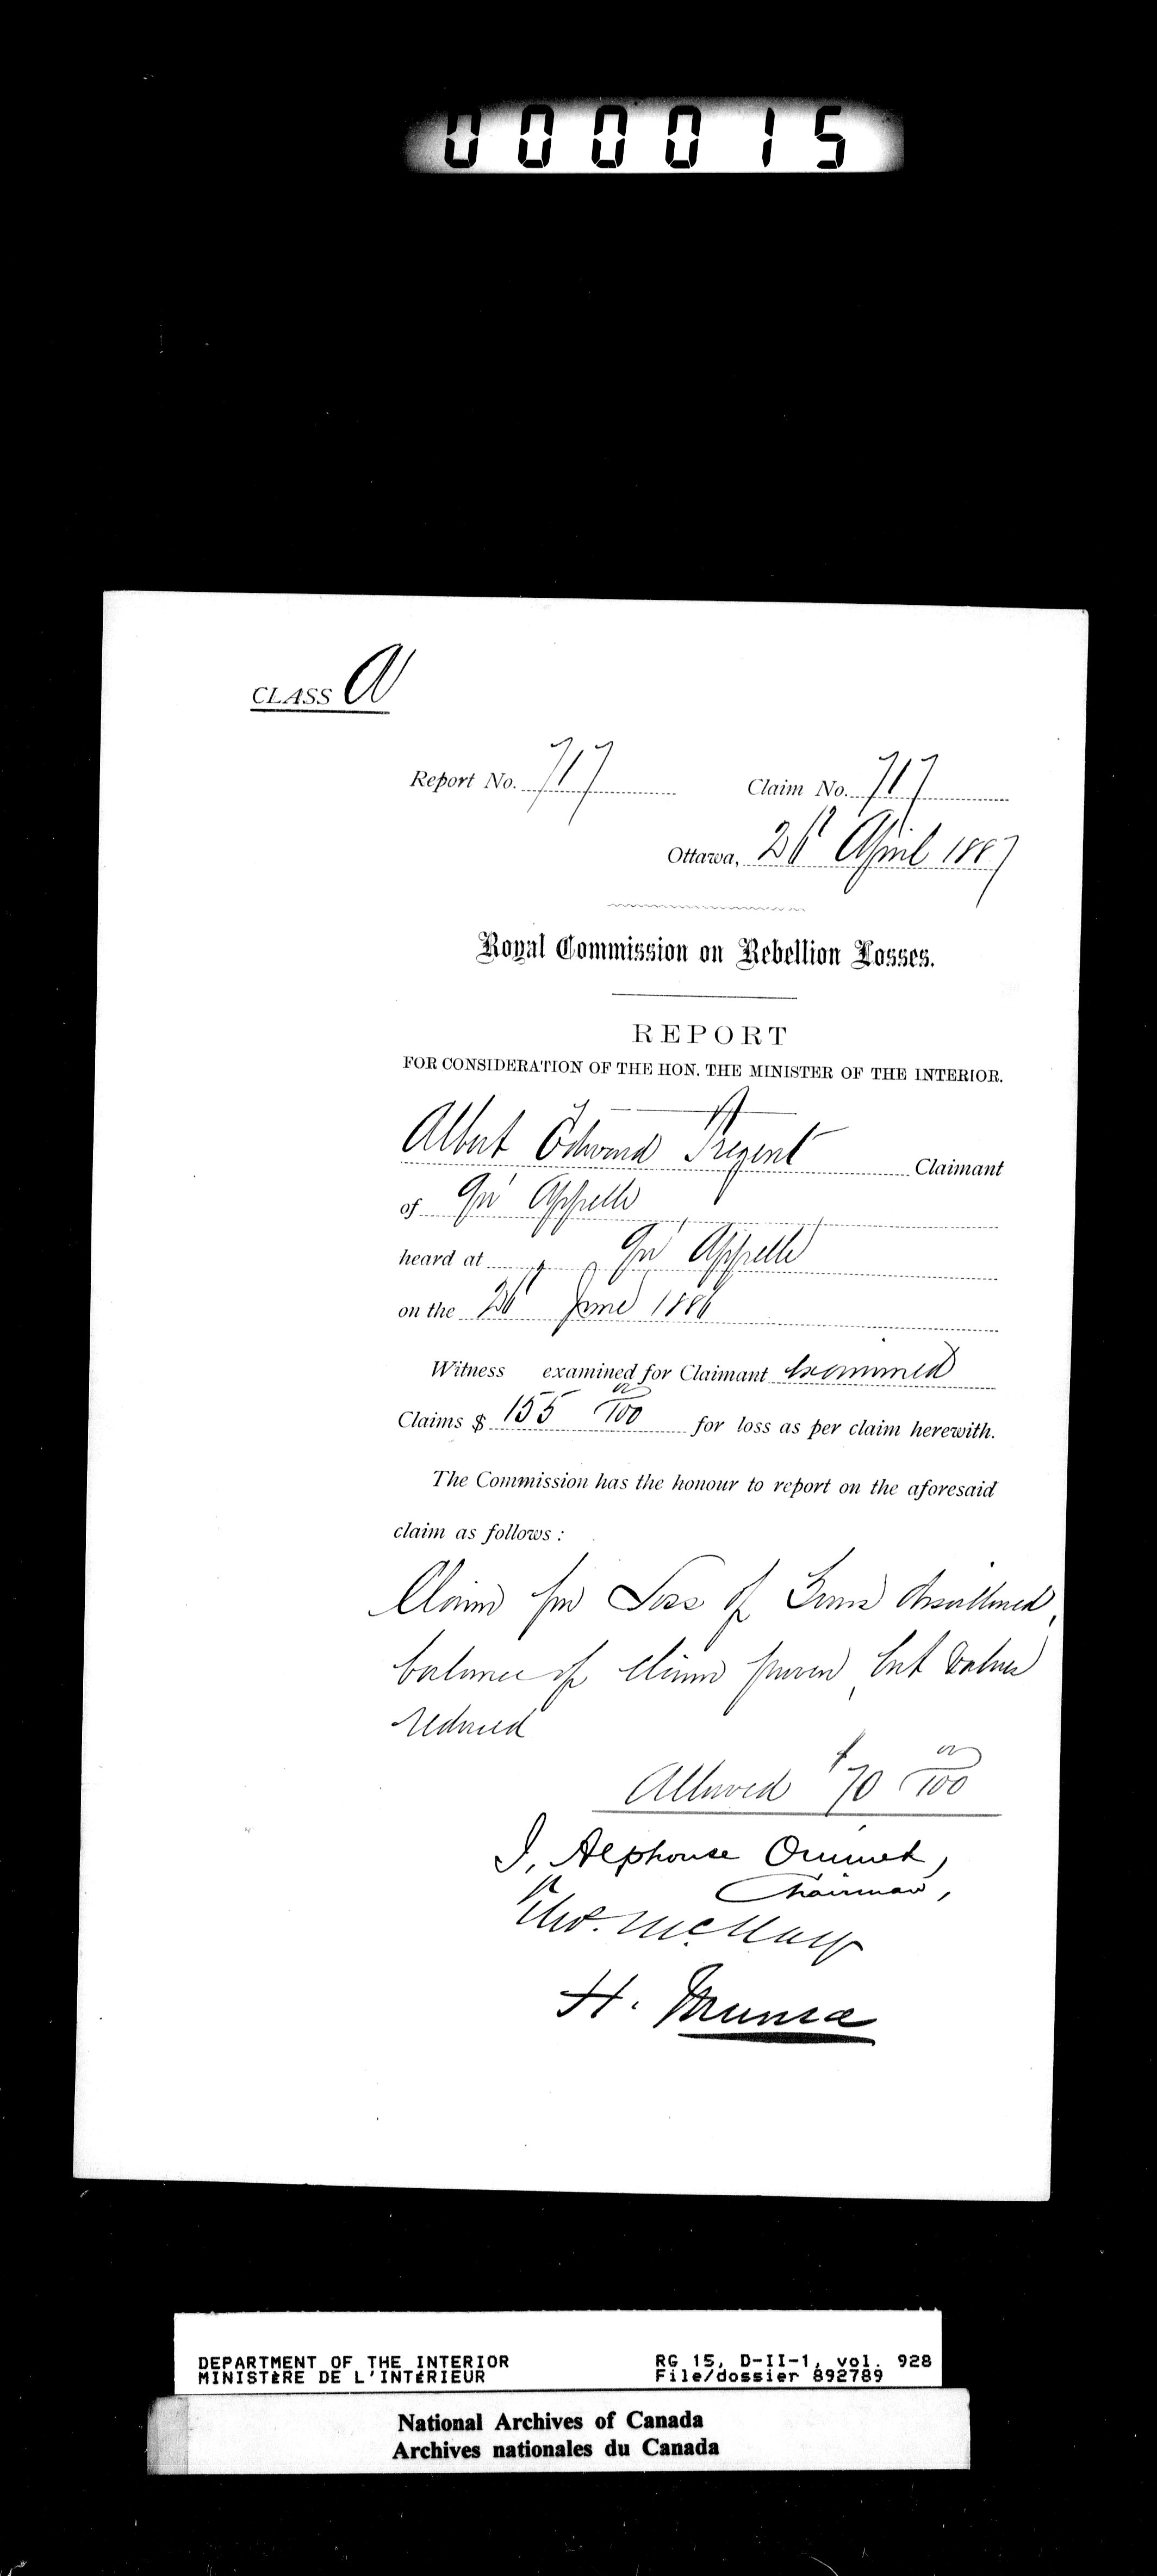 000015
CLASS A
Report No. 717 Claim No. 717
Ottawa, April 1887
Royal Commission on Rebellion Losses.
REPORT
FOR CONSIDERATION OF THE HON. THE MINISTER OF THE INTERIOR.
Albert Edward Claimant
of Qu' Appelle
heard at Qu' Appelle
on the June 1886
Witness examined for Claimant Examined
Claims $ 155 00/100 for loss as per claim herewith.
The Commission has the honour to report on the aforesaid
claim as follows :
Claim for Loss of disallowed,
balance of claim proven, but values
reduced
Allowed $70 00/100
J, Alphonse Ouimet,
Chairman,
Thos. McKay
H. Muma
DEPARTMENT OF THE INTERIOR RG 15, D-II-1, vol. 928
MINISTÈRE DE L'INTÉRIEUR File/dossier 892789
National Archives of Canada
Archives nationales du Canada